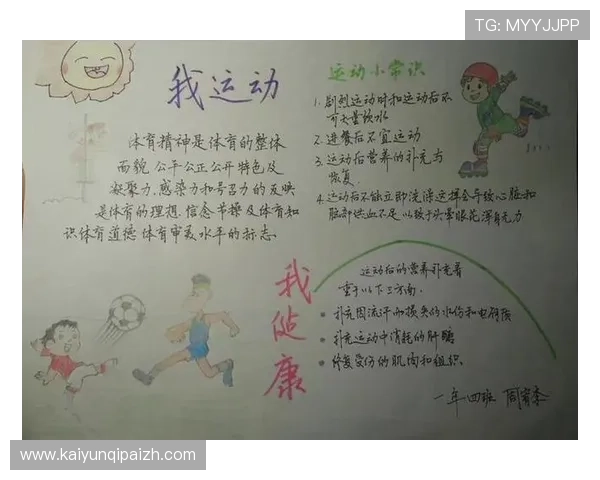 TG: MYYJJPP
我运动
体育精神是体育的整体
面貌.公平公正公开特色及
凝聚力.感染力和号召力的反映
是体育的理想.信念节操及体育知
识体育道德体育审美水平的标志.
运动小常识
1. 剧烈运动时和运动后不
可大量饮水
2. 进餐后不宜运动
3. 运动后营养的补充与
恢复.
4. 运动后不能立即洗澡这样会导致心脏和
脑部供血不足以致于头晕眼花浑身无力
我健康
运动后的营养补充着
重于以下三方面.
补充因流汗而损失的水份和电解质
补充运动中消耗的肝醣
修复受伤的肌肉和组织.
一年四班 周
www.kaiyunqipaizh.com